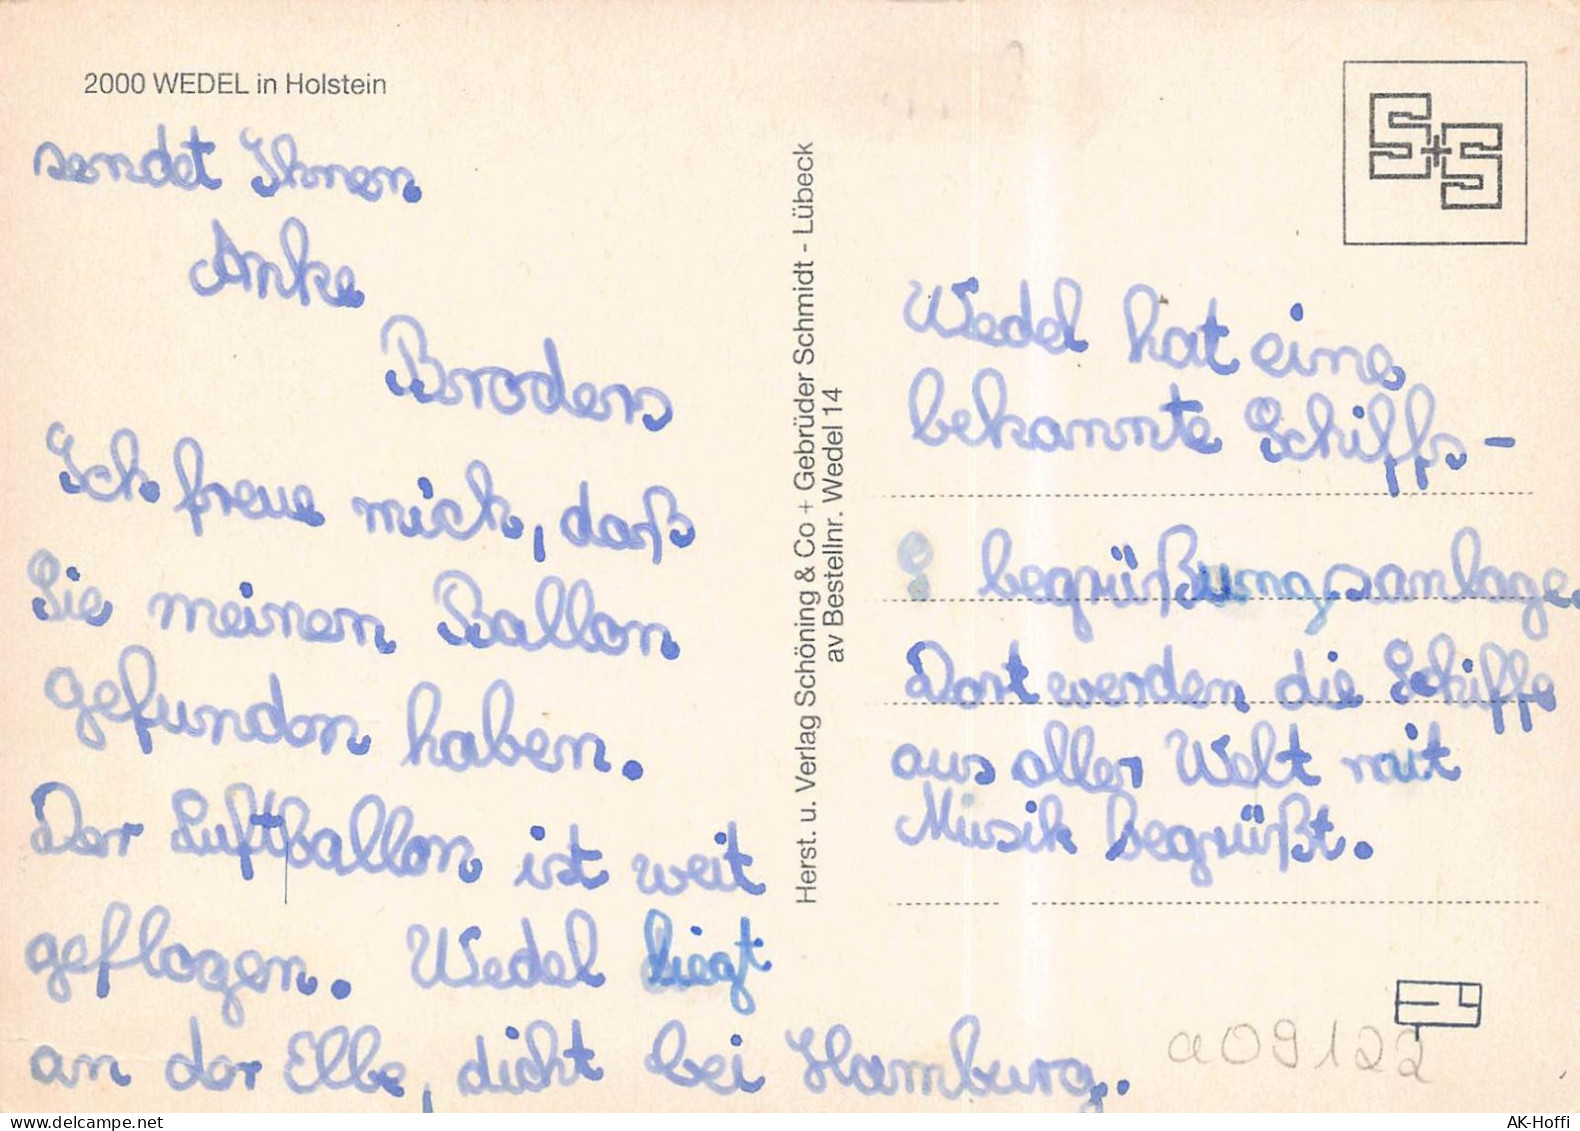 2000 WEDEL in Holstein
sendet Ihnen
Anke
Broders
Ich freue mich, daß
Sie meinen Ballon
gefunden haben.
Der Luftballon ist weit
geflogen. Wedel liegt
an der Elbe, dicht bei Hamburg.
Herst. u. Verlag Schöning & Co + Gebrüder Schmidt - Lübeck
av Bestellnr. Wedel 14
S+S
Wedel hat eine
bekannte Schiffs-
begrüßungsanlage.
Dort werden die Schiffe
aus aller Welt mit
Musik Begrüßt.
a09122
AK-Hoffi